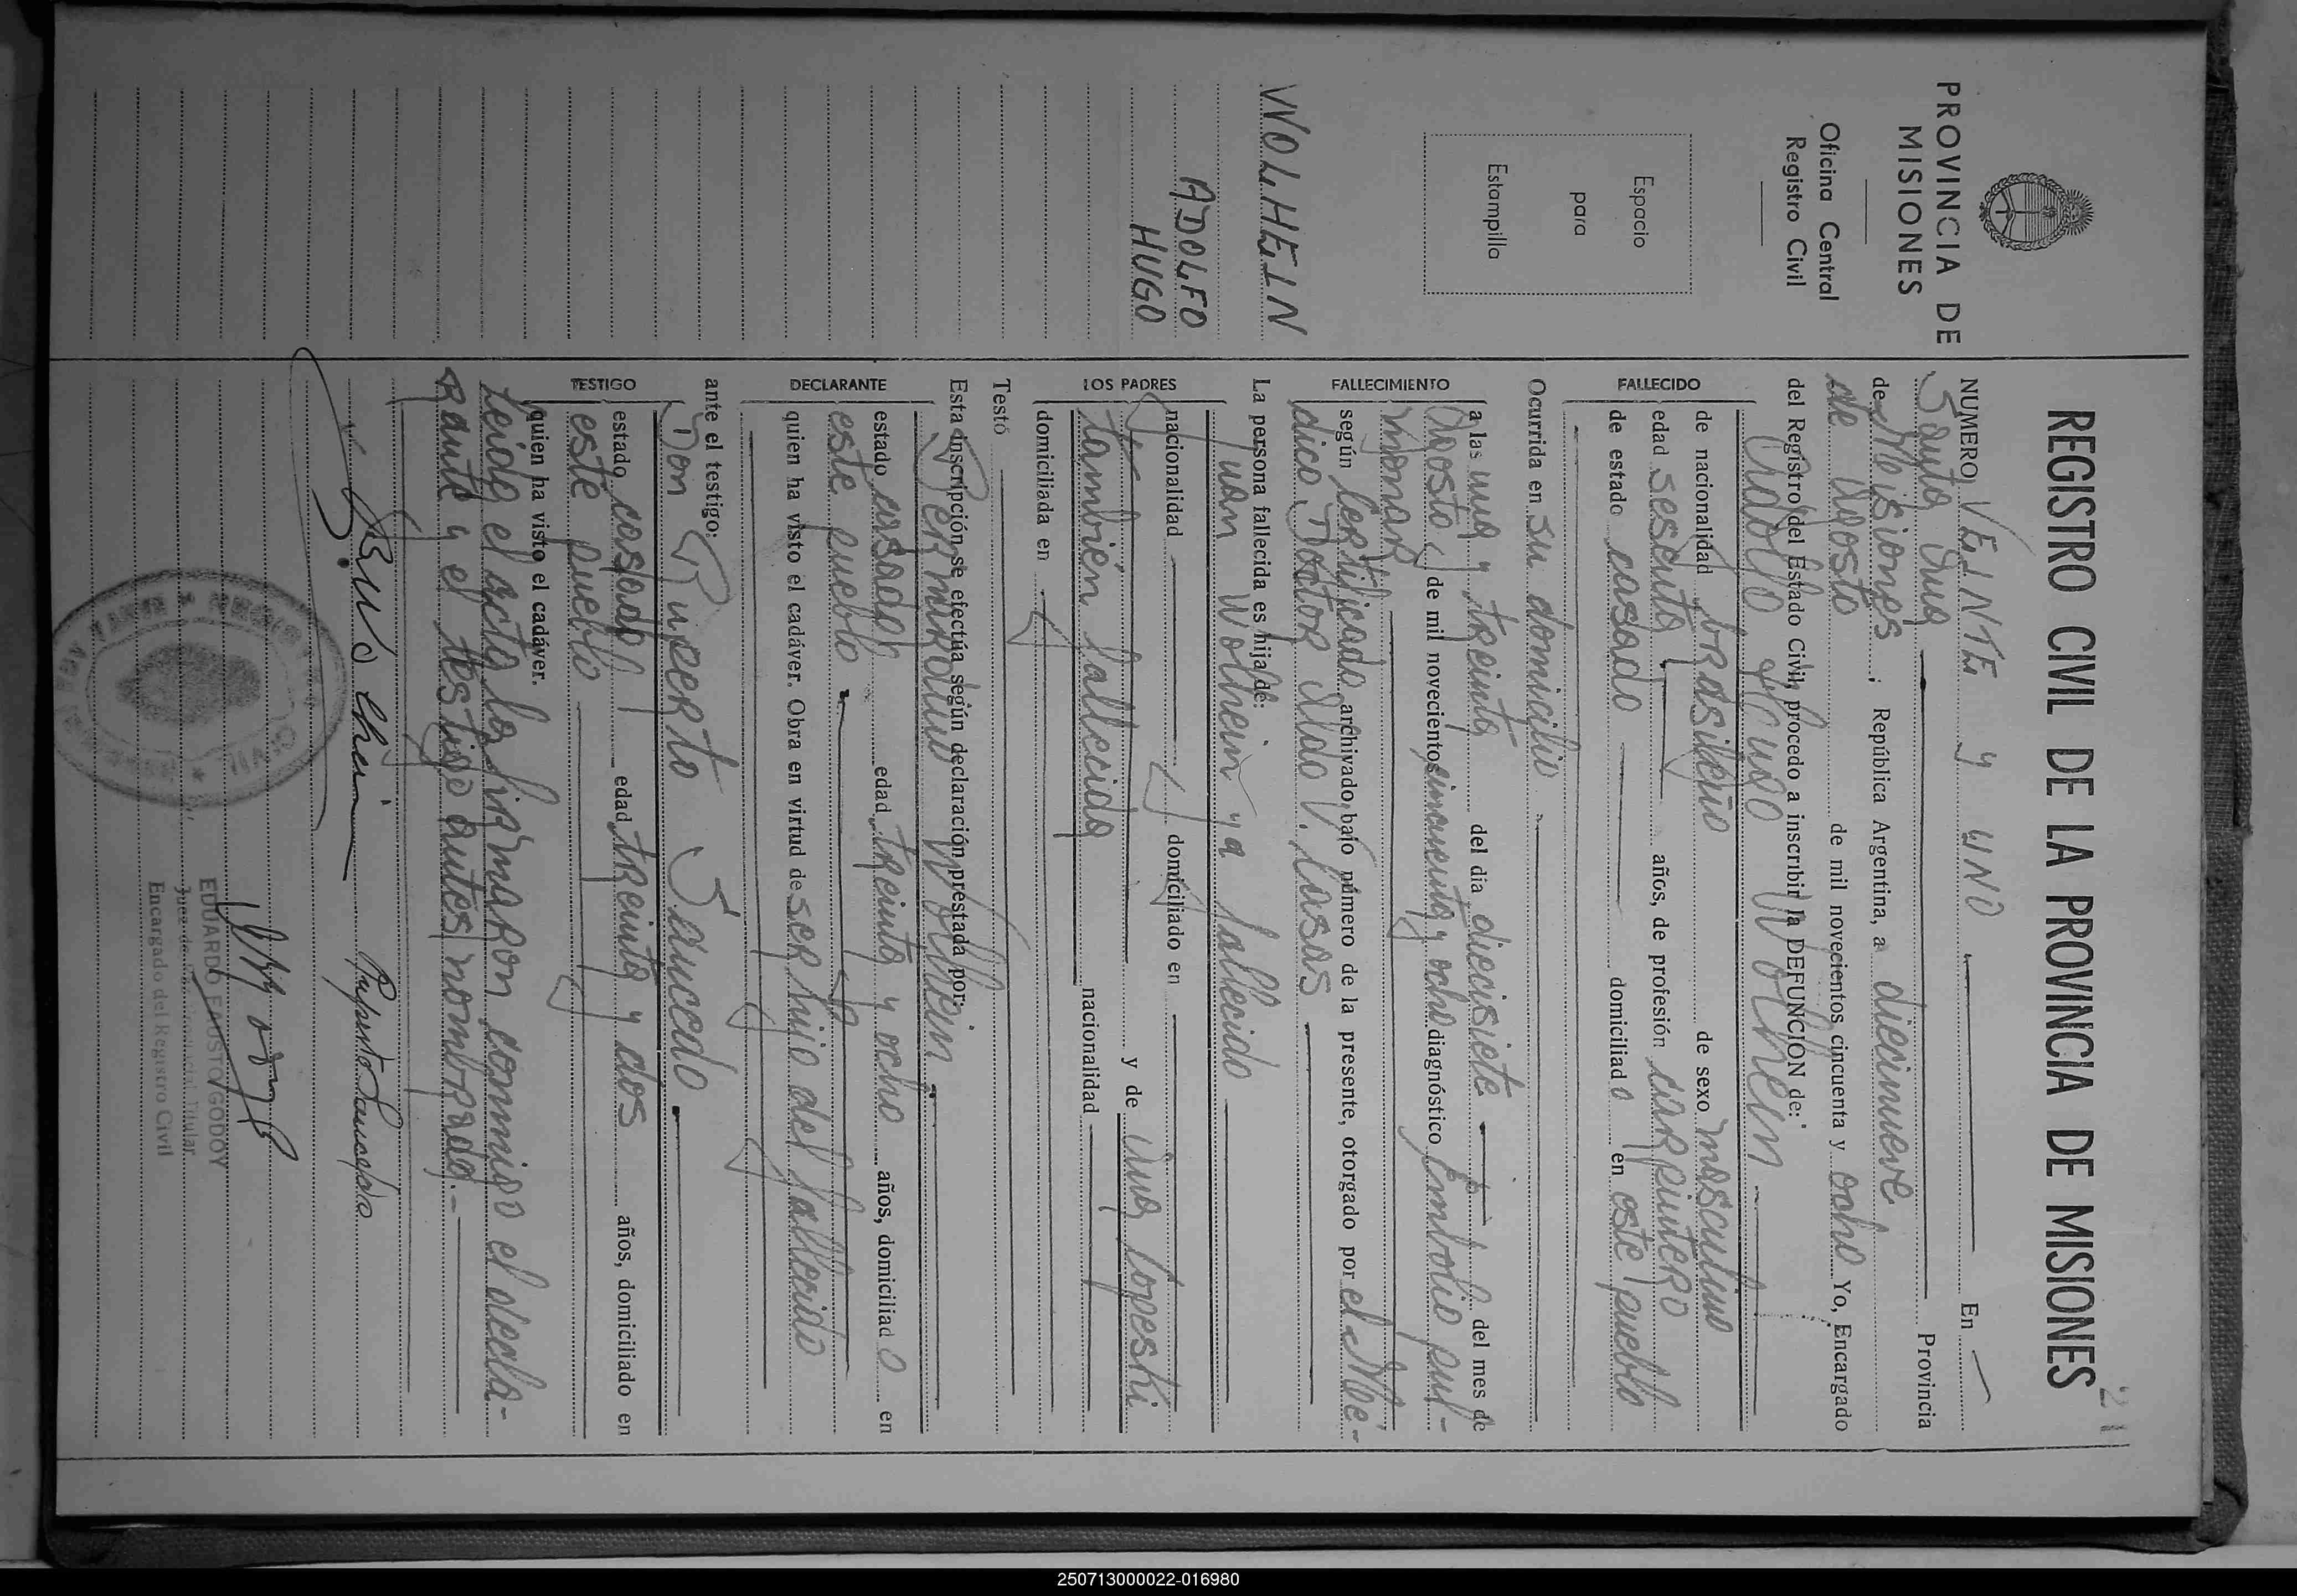 21
REGISTRO CIVIL DE LA PROVINCIA DE MISIONES
PROVINCIA DE
MISIONES
Oficina Central
Registro Civil
Espacio
para
Estampilla
WOLHEIN
ADOLFO
HUGO
NUMERO VEINTE y UNO En
Santa Ana Provincia
de Misiones; República Argentina, a diecinueve
de Agosto de mil novecientos cincuenta y ocho Yo, Encargado
del Registro del Estado Civil, procedo a inscribir la DEFUNCION de:
Adolfo Hugo Wolhein
FALLECIDO
de nacionalidad brasileño de sexo masculino
edad sesenta años, de profesión carpintero
de estado casado domiciliado en este pueblo
Ocurrida en su domicilio
FALLECIMIENTO
a las una y treinta del día diecisiete del mes de
Agosto de mil novecientos cincuenta y ocho diagnóstico Embolio pul-
monar
según Certificado archivado bajo número de la presente, otorgado por el Mé-
dico Doctor Aldo V. Casas
La persona fallecida es hija de:
LOS PADRES
Juan Wolhein ya fallecido
nacionalidad domiciliado en
y de Ana Lopeski
también fallecida nacionalidad
domiciliada en
Testó
Esta inscripción se efectúa según declaración prestada por:
DECLARANTE
Germán Wolhein
estado casado edad treinta y ocho años, domiciliado en
este pueblo
quien ha visto el cadáver. Obra en virtud de ser hijo del fallecido
ante el testigo:
TESTIGO
Don Ruperto Saucedo
estado casado edad treinta y dos años, domiciliado en
este pueblo
quien ha visto el cadáver.
Leído el acta la firmaron conmigo el decla-
rante y el testigo antes nombrado.-
Ruperto Saucedo
EDUARDO FAUSTO GODOY
Encargado del Registro Civil
250713000022-016980